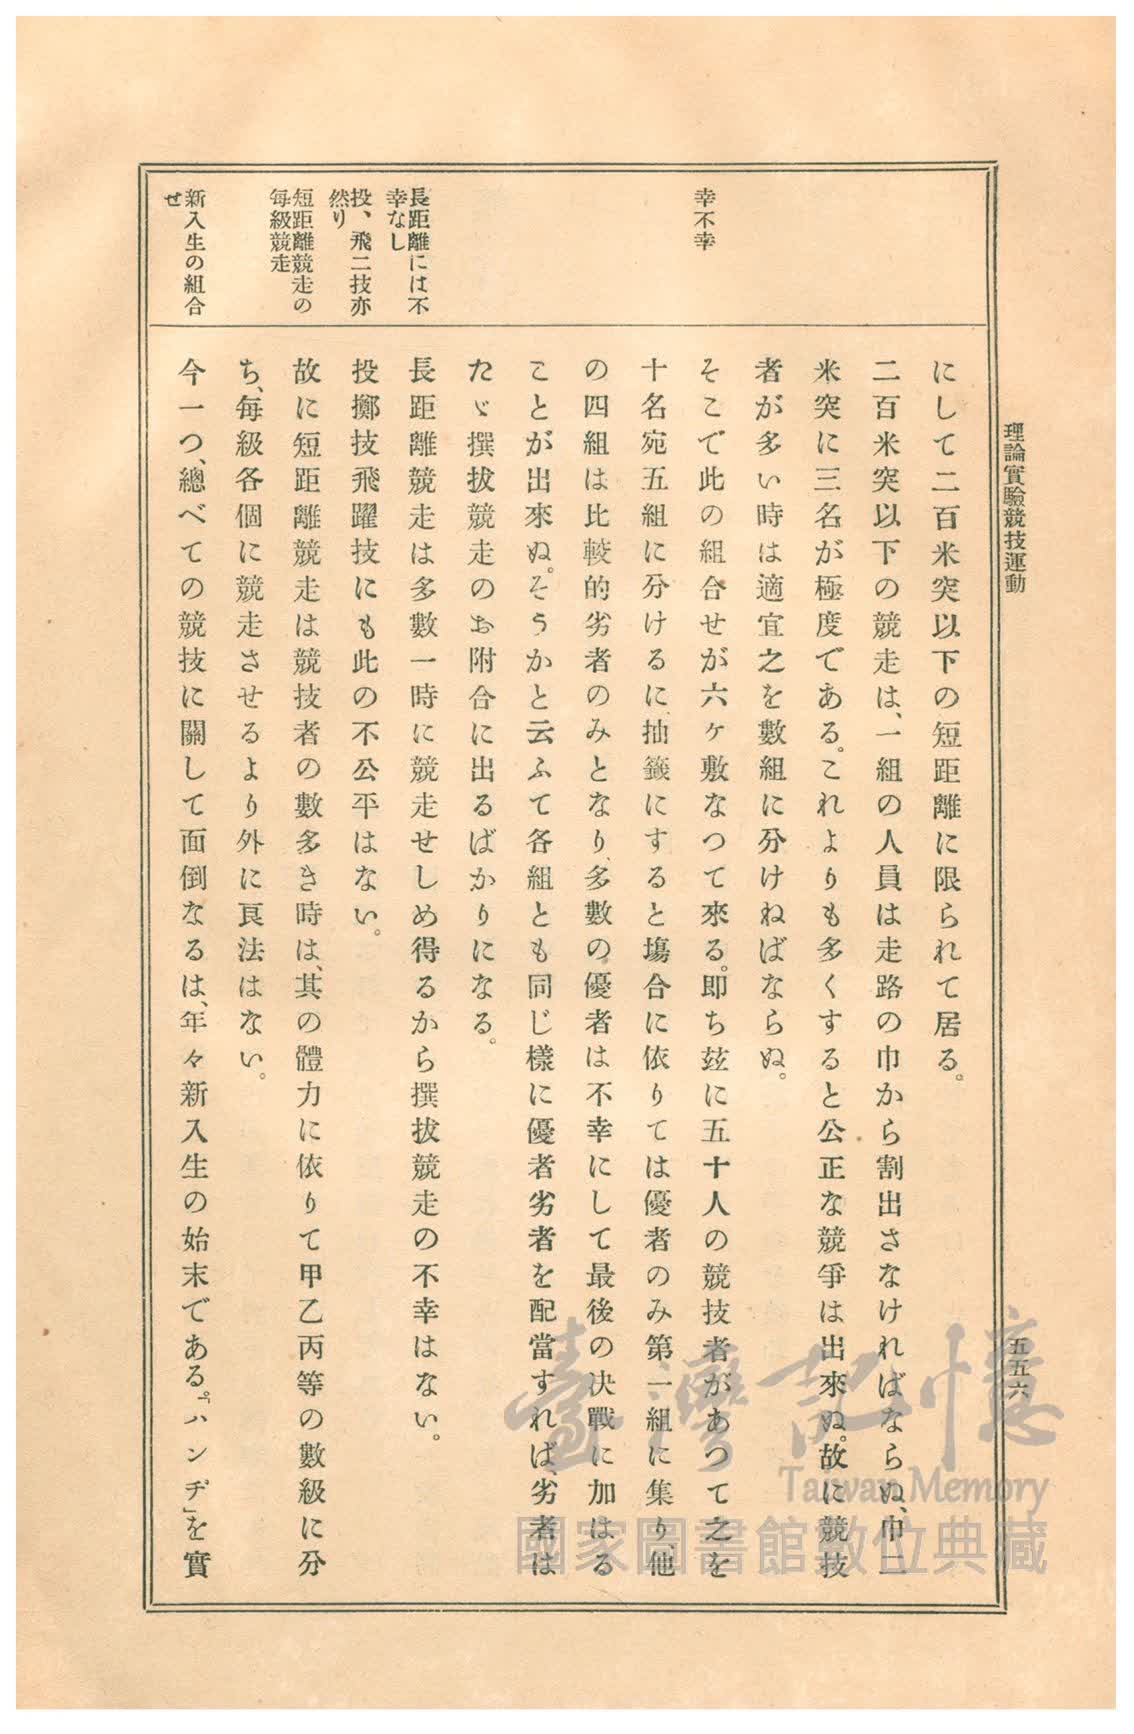 理論實驗競技運動
五五六
幸不幸
長距離には不
幸なし
投、飛二技亦
然り
短距離競走の
每級競走
新入生の組合
せ
にして二百米突以下の短距離に限られて居る。
二百米突以下の競走は、一組の人員は走路の巾から割出さなければならぬ、巾二
米突に三名が極度である。これよりも多くすると公正な競爭は出來ぬ。故に競技
者が多い時は適宜之を數組に分けねばならぬ。
そこで此の組合せが六ヶ敷なつて來る。即ち玆に五十人の競技者があつて之を
十名宛五組に分けるに、抽籤にすると塲合に依りては優者のみ第一組に集り、他
の四組は比較的劣者のみとなり、多數の優者は不幸にして最後の决戰に加はる
ことが出來ぬ。そうかと云ふて各組とも同じ樣に優者劣者を配當すれば、劣者は
たゞ撰拔競走のお附合に出るばかりになる。
長距離競走は多數一時に競走せしめ得るから撰拔競走の不幸はない。
投擲技飛躍技にも此の不公平はない。
故に短距離競走は競技者の數多き時は、其の體力に依りて甲乙丙等の數級に分
ち、每級各個に競走させるより外に良法はない。
今一つ、總べての競技に關して面倒なるは、年々新入生の始末である。「ハンヂ」を實
臺灣記憶
Taiwan Memory
國家圖書館數位典藏